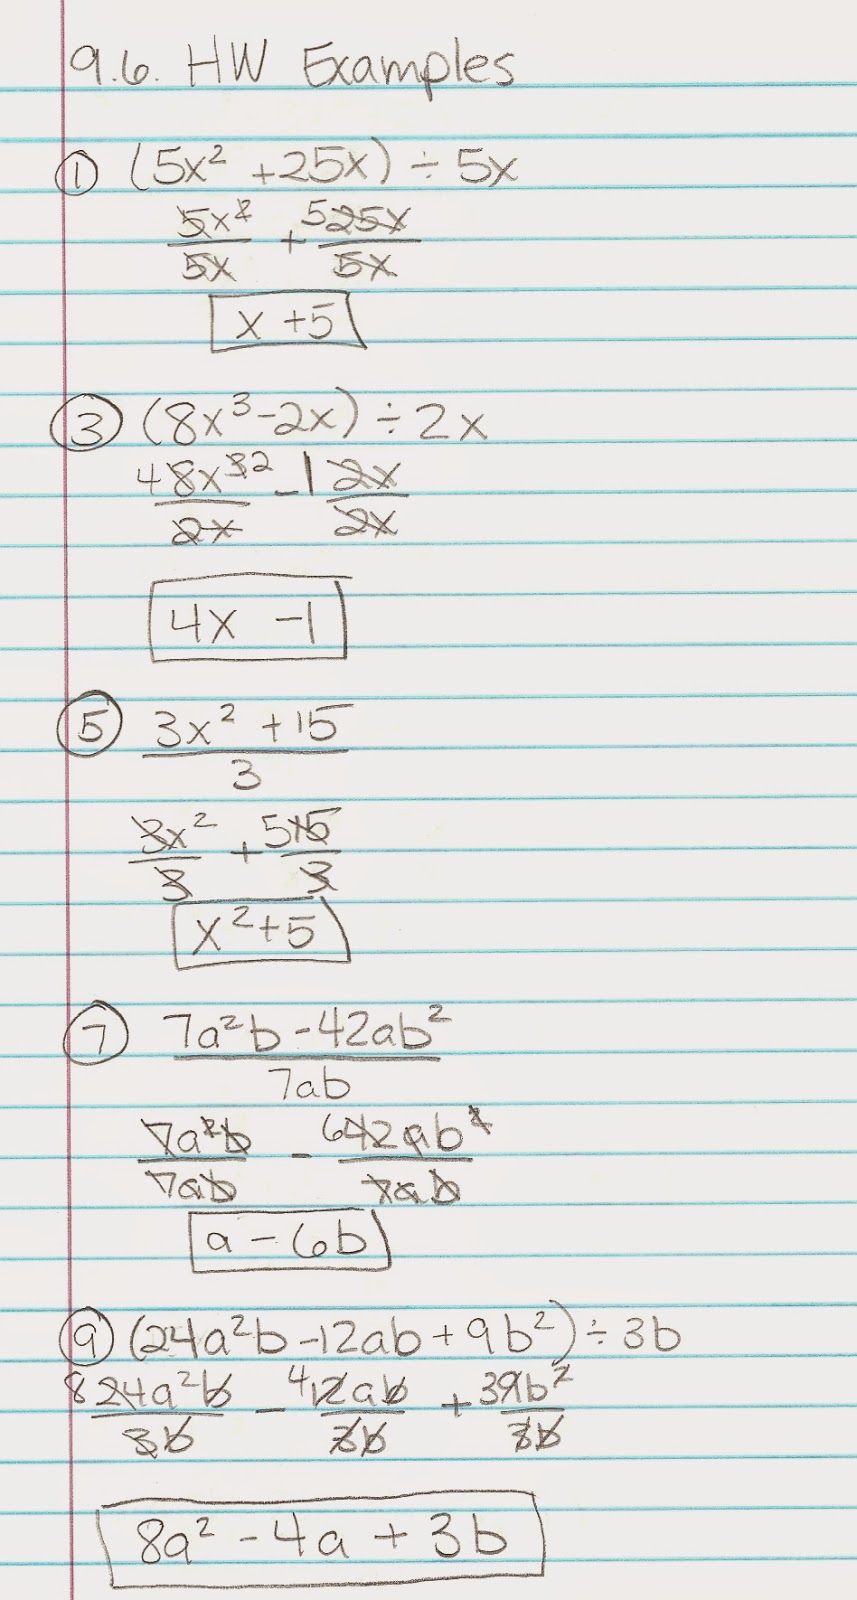 9.6. HW Examples
① (5x² + 25x) ÷ 5x
5x²/5x + 5 25x/5x
x + 5
③ (8x³ - 2x) ÷ 2x
4 8x³ ²/2x - 1 2x/2x
4x - 1
⑤ 3x² + 15
3
3x²/3 + 5 15/3
x² + 5
⑦ 7a²b - 42ab²
7ab
7a²b/7ab - 6 42ab²/7ab
a - 6b
⑨ (24a²b - 12ab + 9b²) ÷ 3b
8 24a²b/3b - 4 12ab/3b + 3 9b²/3b
8a² - 4a + 3b